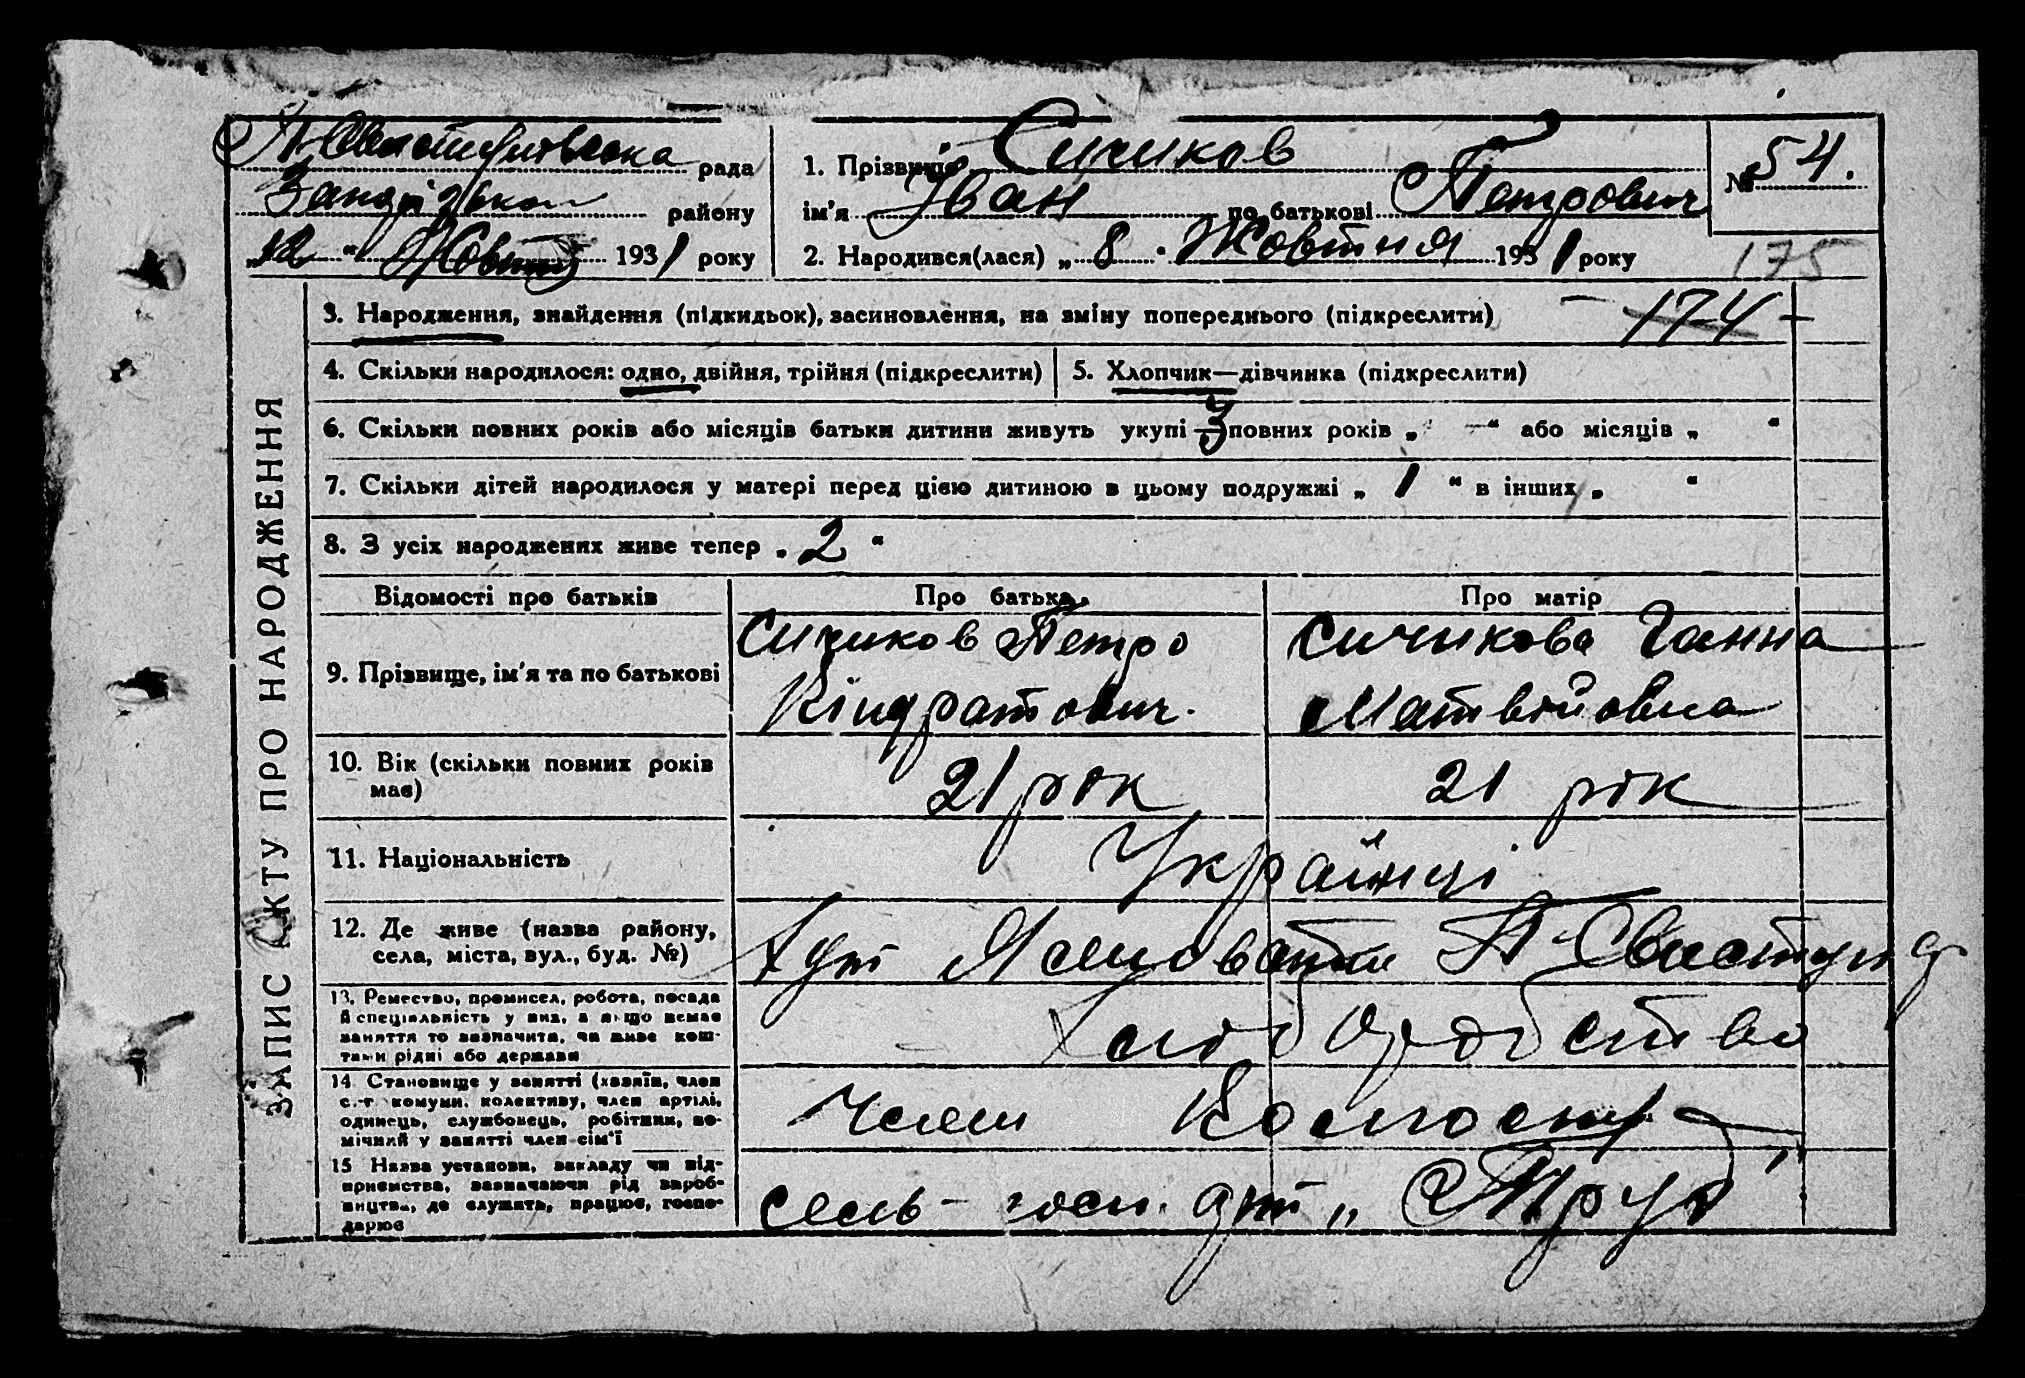 рада
району
„12“ Жовтня 1931 року
1. Прізвище Сичиков
ім'я Іван по батькові Петрович
2. Народився(лася) „8“ Жовтня 1931 року
№ 54.
175
ЗАПИС АКТУ ПРО НАРОДЖЕННЯ
3. Народження, знайдення (підкидьок), засиновлення, на зміну попереднього (підкреслити) - 174 -
4. Скільки народилося: одно, двійня, трійня (підкреслити) 5. Хлопчик—дівчинка (підкреслити)
6. Скільки повних років або місяців батьки дитини живуть укупі 3 повних років „ — “ або місяців „ “
7. Скільки дітей народилося у матері перед цією дитиною в цьому подружжі „ 1 “ в інших „ “
8. З усіх народжених живе тепер „ 2 “
Відомості про батьків Про батька Про матір
9. Прізвище, ім'я та по батькові
Сичиков Петро
Кіндратович.
Сичикова Ганна
Матвійовна
10. Вік (скільки повних років
має)
21 рік 21 рік
11. Національність Українці
12. Де живе (назва району,
села, міста, вул., буд. №)
хут Ясиноватка
13. Ремество, промисел, робота, посада
й спеціальність у них, а якщо немає
заняття то зазначити, чи живе кош-
тами рідні або держави
Хліборобство
14 Становище у занятті (хазяїн, член
с.-г. комуни. колективу, член артілі,
одинець, службовець, робітник, по-
мічний у занятті член сім'ї
Член Колгоспу
15 Назва установи, закладу чи під-
приємства, зазначаючи рід вироб-
ництва, де служить, працює, госпо-
дарює
сель-госп. арт „Труд“